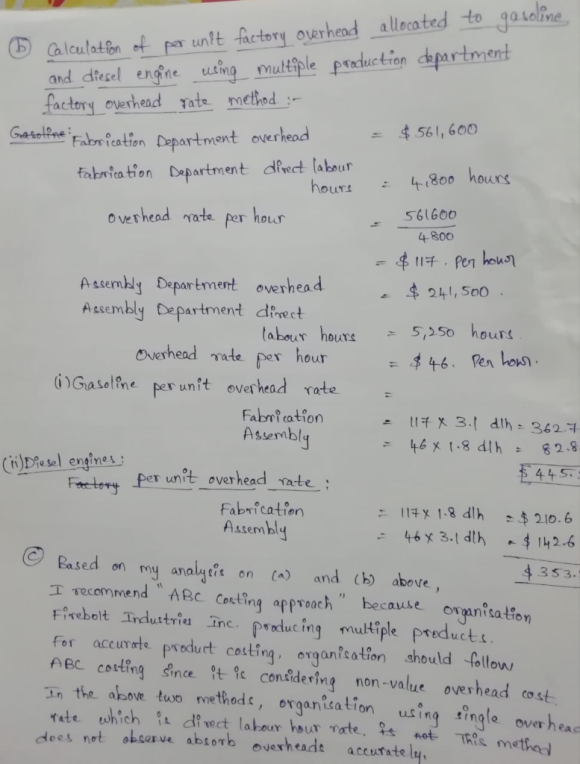 (b) Calculation of per unit factory overhead allocated to gasoline
and diesel engine using multiple production department
factory overhead rate method :-
Gasoline: Fabrication Department overhead = $ 561,600
Fabrication Department direct labour
hours = 4,800 hours
Overhead rate per hour = 561600
4800
= $ 117. Per hour
Assembly Department overhead = $ 241,500.
Assembly Department direct
labour hours = 5,250 hours.
Overhead rate per hour = $ 46. Per hour.
(i) Gasoline per unit overhead rate =
Fabrication = 117 x 3.1 dlh = 362.7
Assembly = 46 x 1.8 dlh = 82.8
$ 445.
(ii) Diesel engines:
Factory per unit overhead rate :
Fabrication = 117 x 1.8 dlh = $ 210.6
Assembly = 46 x 3.1 dlh = $ 142.6
$ 353.
(c) Based on my analysis on (a) and (b) above,
I recommend "ABC costing approach" because organisation
Firebolt Industries Inc. producing multiple products.
For accurate product costing, organisation should follow
ABC costing since it is considering non-value overhead cost.
In the above two methods, organisation using single overhead
rate which is direct labour hour rate. is not This method
does not observe absorb overheads accurately.